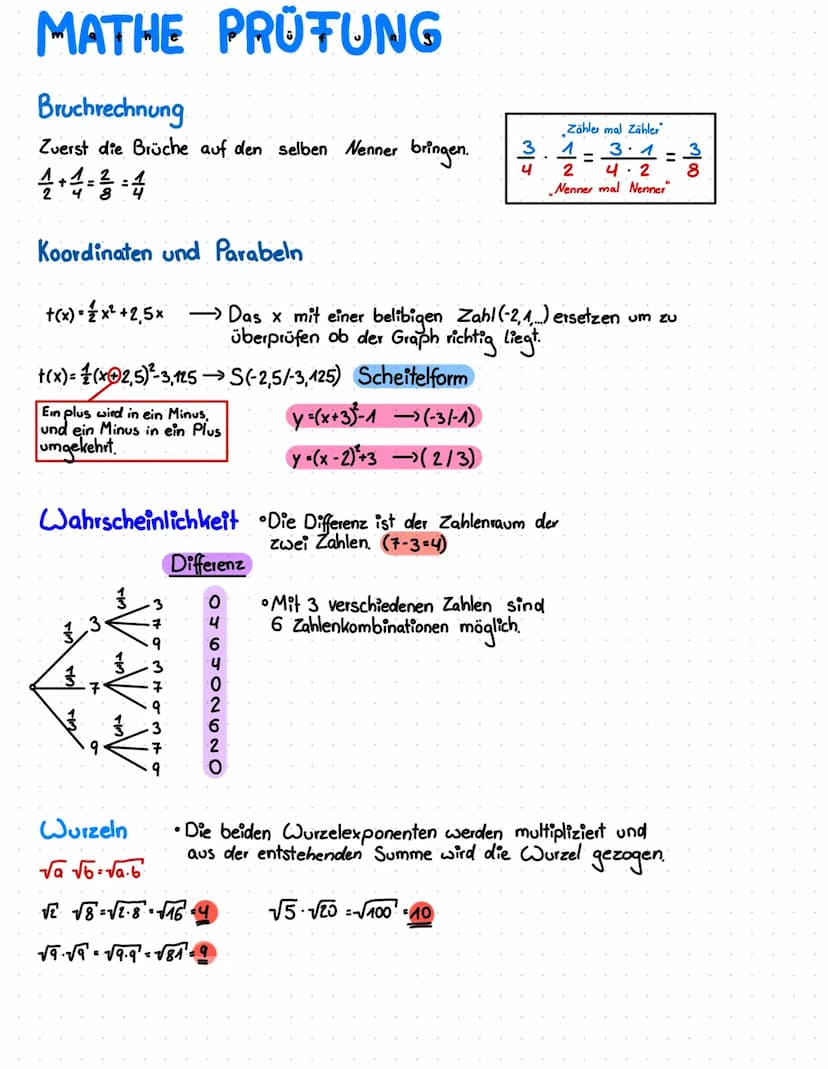 MATHE PRÜFUNG
mathe prüfung
Bruchrechnung
Zuerst die Brüche auf den selben Nenner bringen.
1/2 + 1/4 = 2/8 = 1/4
"Zähler mal Zähler"
3/4 · 1/2 = 3 · 1/4 · 2 = 3/8
"Nenner mal Nenner"
Koordinaten und Parabeln
f(x) = 1/2 x² + 2,5x → Das x mit einer belibigen Zahl (-2,1,...) ersetzen um zu
überprüfen ob der Graph richtig liegt.
f(x) = 1/2 (x+2,5)² - 3,125 → S(-2,5/-3,125) Scheitelform
Ein plus wird in ein Minus,
und ein Minus in ein Plus
umgekehrt.
y = (x+3)² - 1 → (-3/-1)
y = (x - 2)² + 3 → (2/3)
Wahrscheinlichkeit
• Die Differenz ist der Zahlenraum der
zwei Zahlen. (7-3=4)
Differenz
1/3 3 0
1/3 3 7 4
9 6
1/3 3 4
1/3 7 7 0
9 2
1/3 1/3 3 6
9 7 2
9 0
• Mit 3 verschiedenen Zahlen sind
6 Zahlenkombinationen möglich.
Wurzeln
• Die beiden Wurzelexponenten werden multipliziert und
aus der entstehenden Summe wird die Wurzel gezogen.
√a √b = √a·b
√2 √8 = √2·8 = √16 = 4
√5 · √20 = √100 = 10
√9 · √9 = √9·9 = √81 = 9